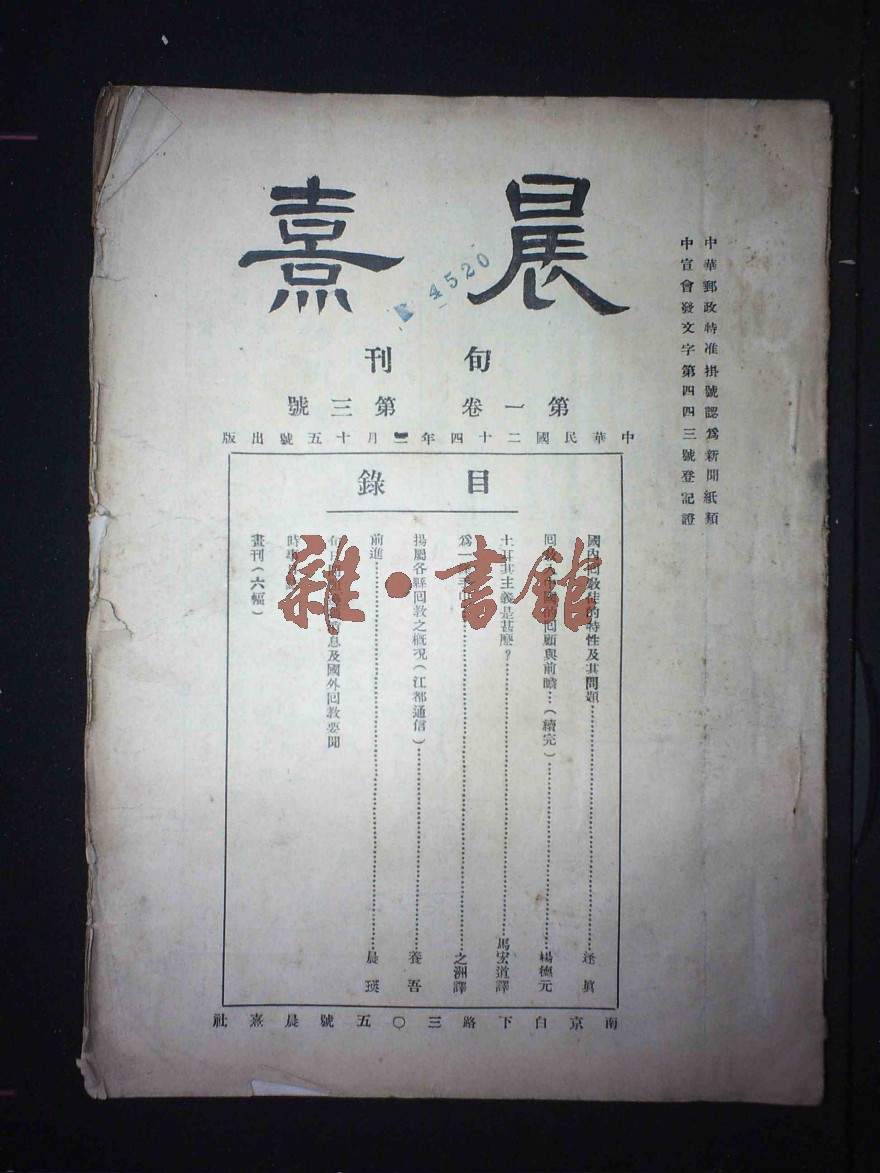 中華郵政特准掛號認爲新聞紙類
中宣會發文字第四四三號登記證
晨熹
4520
旬刊
第一卷 第三號
中華民國二十四年二月十五號出版
目錄
國內回教徒的特性及其問題 逢眞
回教 中國的回顧與前瞻…（續完） 楊德元
土耳其主義是甚麼？ 馬宏道譯
爲一 之洲譯
揚屬各縣回教之概況（江都通信） 養吾
前進 晨瑛
每日 消息及國外回教要聞
時事
畫刊（六幅）
雜·書館
南京白下路三〇五號晨熹社